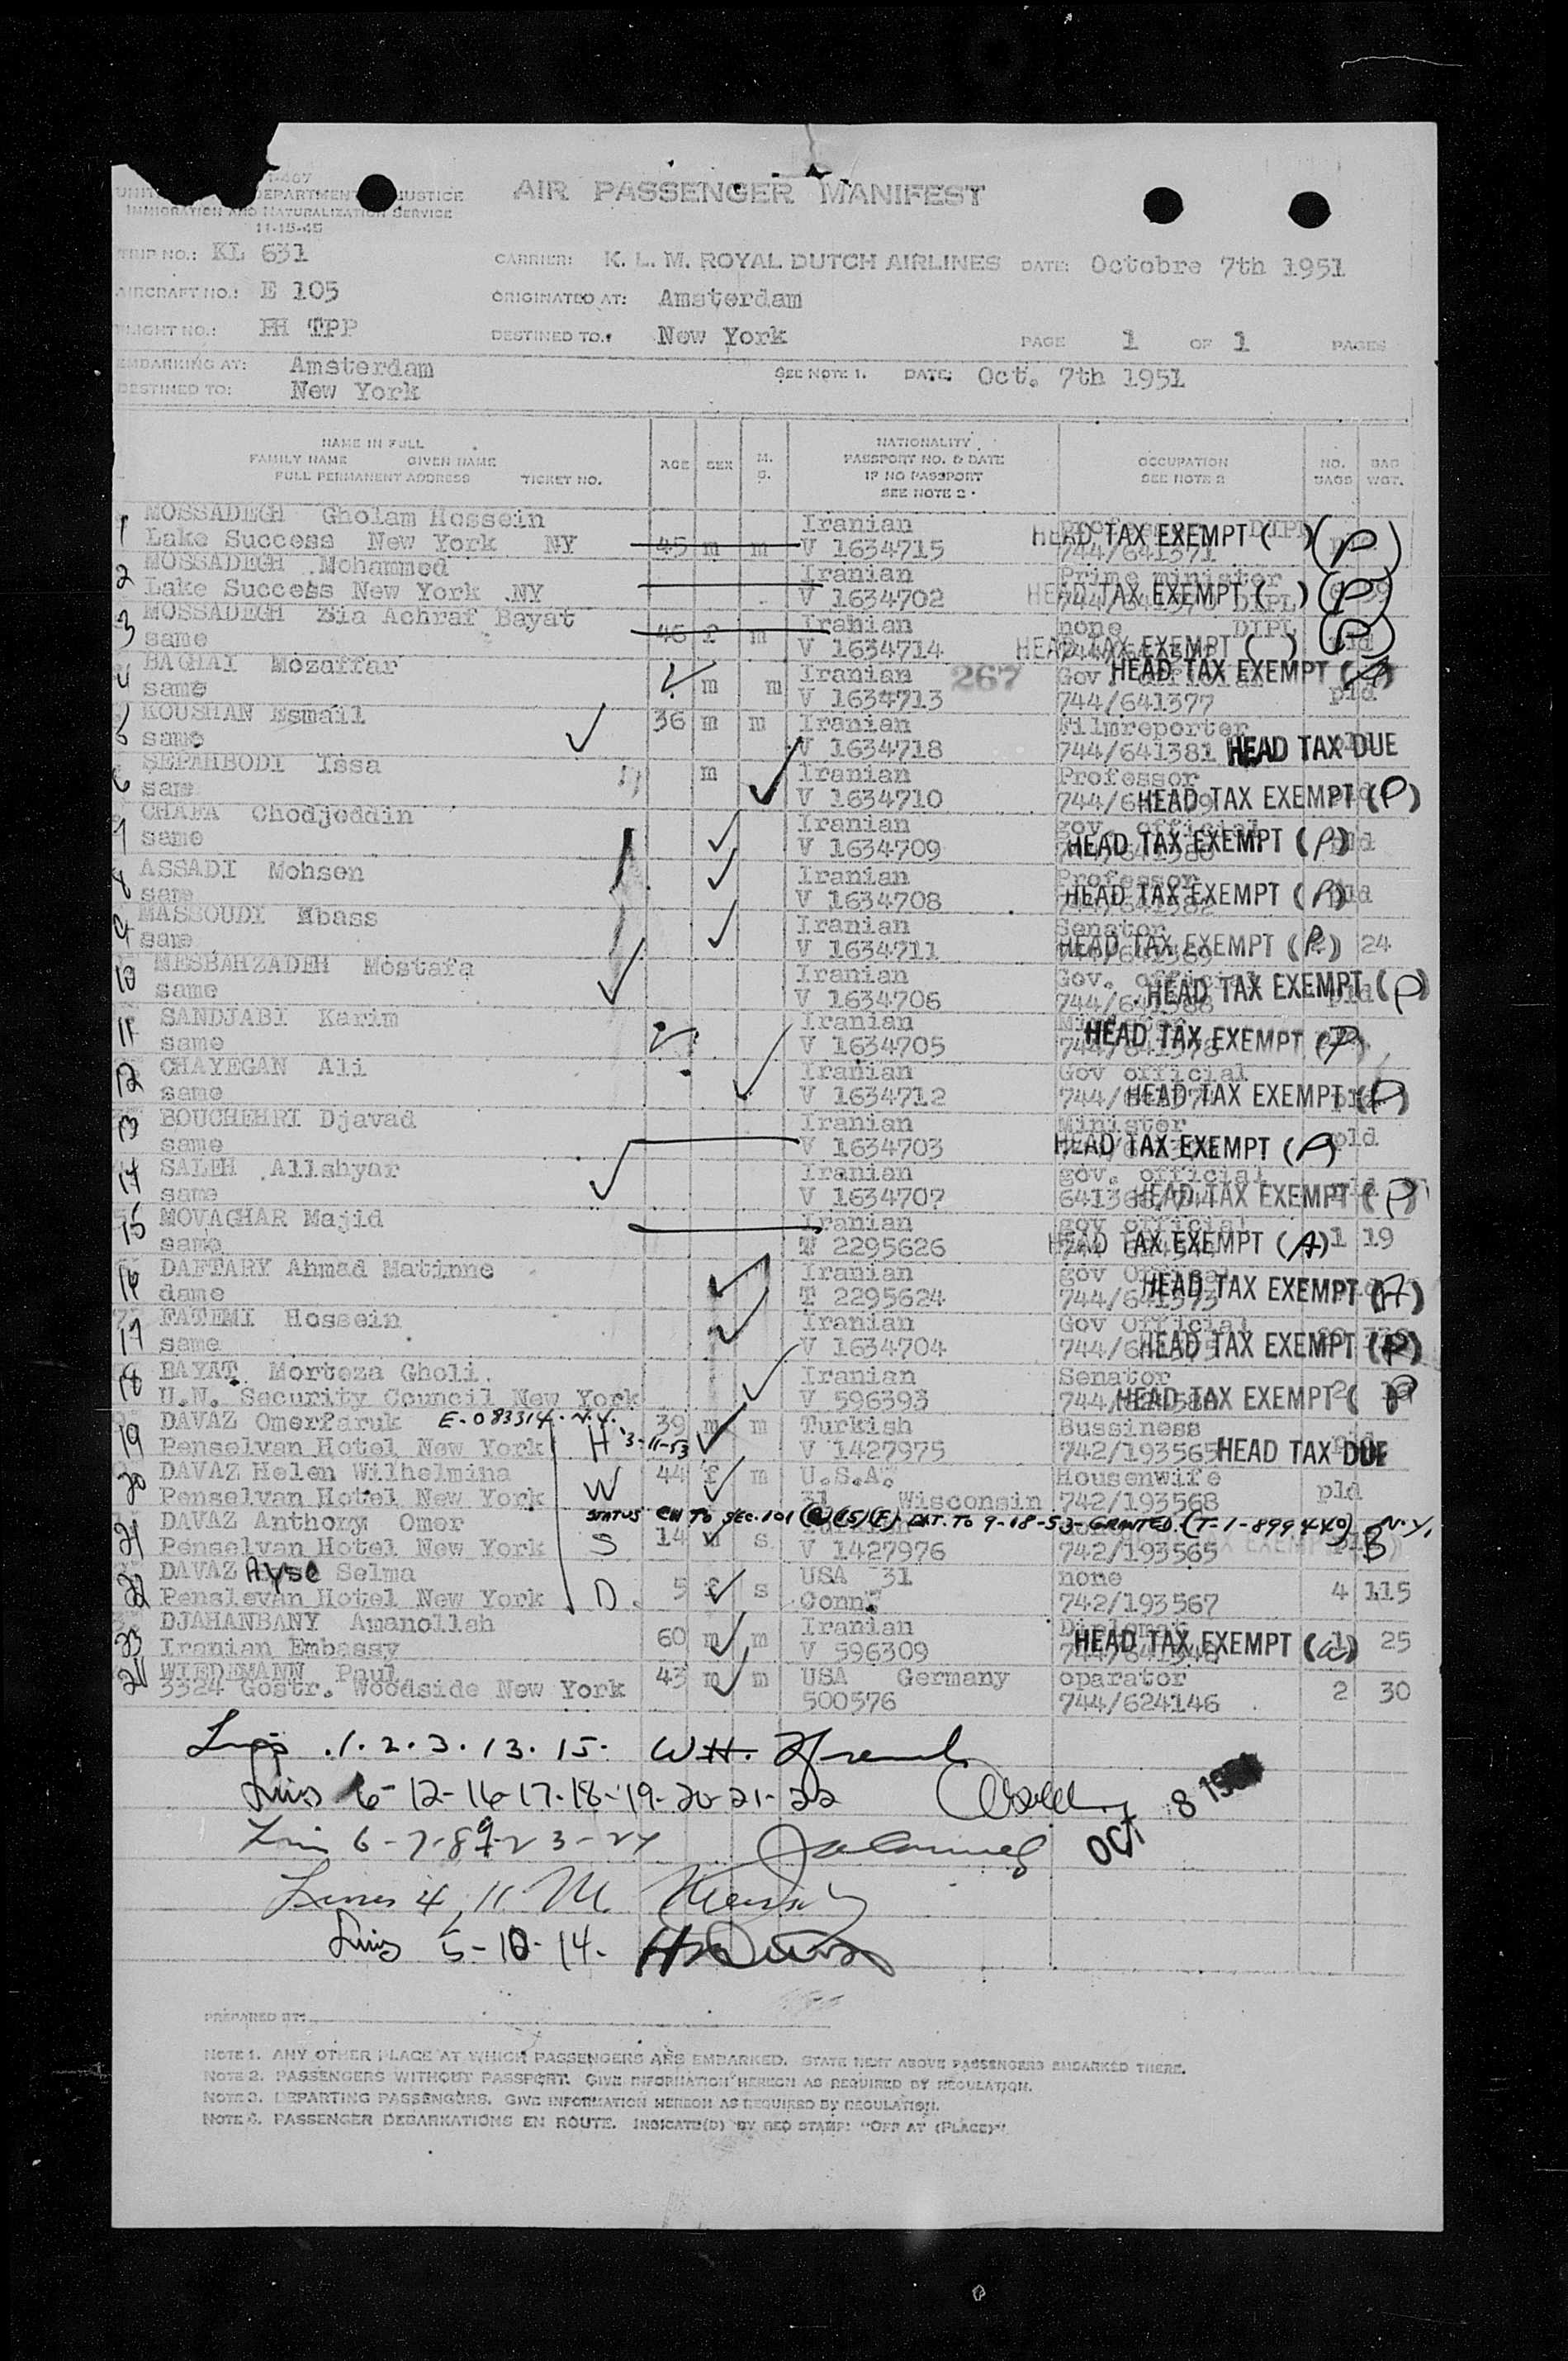 I-467
DEPARTMENT JUSTICE
IMMIGRATION AND NATURALIZATION SERVICE
11-15-45
AIR PASSENGER MANIFEST
TRIP NO.: KL 631
CARRIER: K. L. M. ROYAL DUTCH AIRLINES DATE: Octobre 7th 1951
AIRCRAFT NO.: E 105
ORIGINATED AT: Amsterdam
FLIGHT NO.: PH TPP
DESTINED TO: New York
PAGE 1 OF 1 PAGES
EMBARKING AT: Amsterdam
SEE NOTE 1. DATE: Oct. 7th 1951
DESTINED TO: New York
NAME IN FULL
FAMILY NAME GIVEN NAME
FULL PERMANENT ADDRESS TICKET NO.
AGE SEX M. S.
NATIONALITY
PASSPORT NO. & DATE
IF NO PASSPORT
SEE NOTE 2.
OCCUPATION
SEE NOTE 2
NO. BAGS
BAG WGT.
1 MOSSADEGH Gholam Hossein Iranian DIPL
Lake Success New York NY 45 m m V 1634715 744/641371 HEAD TAX EXEMPT ( ) (P)
2 MOSSADEGH Mohammed Iranian Prime minister
Lake Success New York NY V 1634702 DIPL HEAD TAX EXEMPT ( ) (P)
3 MOSSADEGH Zia Achraf Bayat Iranian none DIPL
same 46 f m V 1634714 HEAD TAX EXEMPT ( ) (P)
4 BAGHAI Mozaffar Iranian 267 Gov. official HEAD TAX EXEMPT
same m m V 1634713 744/641377 pld
5 KOUSHAN Esmail 36 m m Iranian Filmreporter
same V 1634718 744/641381 HEAD TAX DUE
6 SEPAHBODI Issa m Iranian Professor
same V 1634710 HEAD TAX EXEMPT (P)
7 CHAFA Chodjoddin Iranian gov. official
same V 1634709 HEAD TAX EXEMPT (P) pld
8 ASSADI Mohsen Iranian Professor
same V 1634708 HEAD TAX EXEMPT (P) pld
9 MASSOUDI Abass Iranian Senator
same V 1634711 HEAD TAX EXEMPT (P) 24
10 MESBAHZADEH Mostafa Iranian Gov. official
same V 1634706 744/641388 HEAD TAX EXEMPT (P)
11 SANDJABI Karim Iranian
same V 1634705 HEAD TAX EXEMPT (P)
12 CHAYEGAN Ali Iranian Gov official
same V 1634712 HEAD TAX EXEMPT (P)
13 BOUCHEHRI Djavad Iranian Minister
same V 1634703 HEAD TAX EXEMPT (A) pld
14 SALEH Allahyar Iranian gov. official
same V 1634707 HEAD TAX EXEMPT (P)
15 MOVAGHAR Majid Iranian gov official
same T 2295626 HEAD TAX EXEMPT (A) 1 19
16 DAFTARY Ahmad Matinne Iranian gov Official
dame T 2295624 744/641373 HEAD TAX EXEMPT (A)
17 FATEMI Hossein Iranian Gov Official
same V 1634704 HEAD TAX EXEMPT (P)
18 BAYAT Morteza Gholi. Iranian Senator
U.N. Security Council New York V 596393 HEAD TAX EXEMPT ( P 2
19 DAVAZ Omerfaruk E-083314-N.Y. 39 m m Turkish Bussiness
Penselvan Hotel New York H 3-11-53 V 1427975 742/193565 HEAD TAX DUE
20 DAVAZ Helen Wilhelmina W 44 f m U.S.A. Housenwife
Penselvan Hotel New York 31 Wisconsin 742/193568 pld
STATUS CH TO SEC. 101 (a)(15)(F) EXT. TO 9-18-53-GRANTED. (T-1-899440) N.Y.
21 DAVAZ Anthony Omer
Penselvan Hotel New York S 14 m s V 1427976 742/193565 B
22 DAVAZ Ayse Selma D 5 f s USA 31 none
Penslevan Hotel New York Conn. 742/193567 4 115
23 DJAHANBANY Amanollah 60 m m Iranian Diplomat
Iranian Embassy V 596309 HEAD TAX EXEMPT (a) 1 25
24 WIEDEMANN Paul 43 m m USA Germany oparator
3324 Gostr. Woodside New York 500576 744/624146 2 30
Lines .1.2.3.13.15.
Lines 6-12-16-17-18-19-20-21-22
OCT 8 1951
Lines 6-7-8-9-23-24
Lines 4, 11
Lines 5-10-14.
PREPARED BY:
NOTE 1. ANY OTHER PLACE AT WHICH PASSENGERS ARE EMBARKED. STATE NEXT ABOVE PASSENGERS EMBARKED THERE.
NOTE 2. PASSENGERS WITHOUT PASSPORT. GIVE INFORMATION HEREON AS REQUIRED BY REGULATION.
NOTE 3. DEPARTING PASSENGERS. GIVE INFORMATION HEREON AS REQUIRED BY REGULATION.
NOTE 4. PASSENGER DEBARKATIONS EN ROUTE. INDICATE(D) BY RED STAMP: "OFF AT (PLACE)"